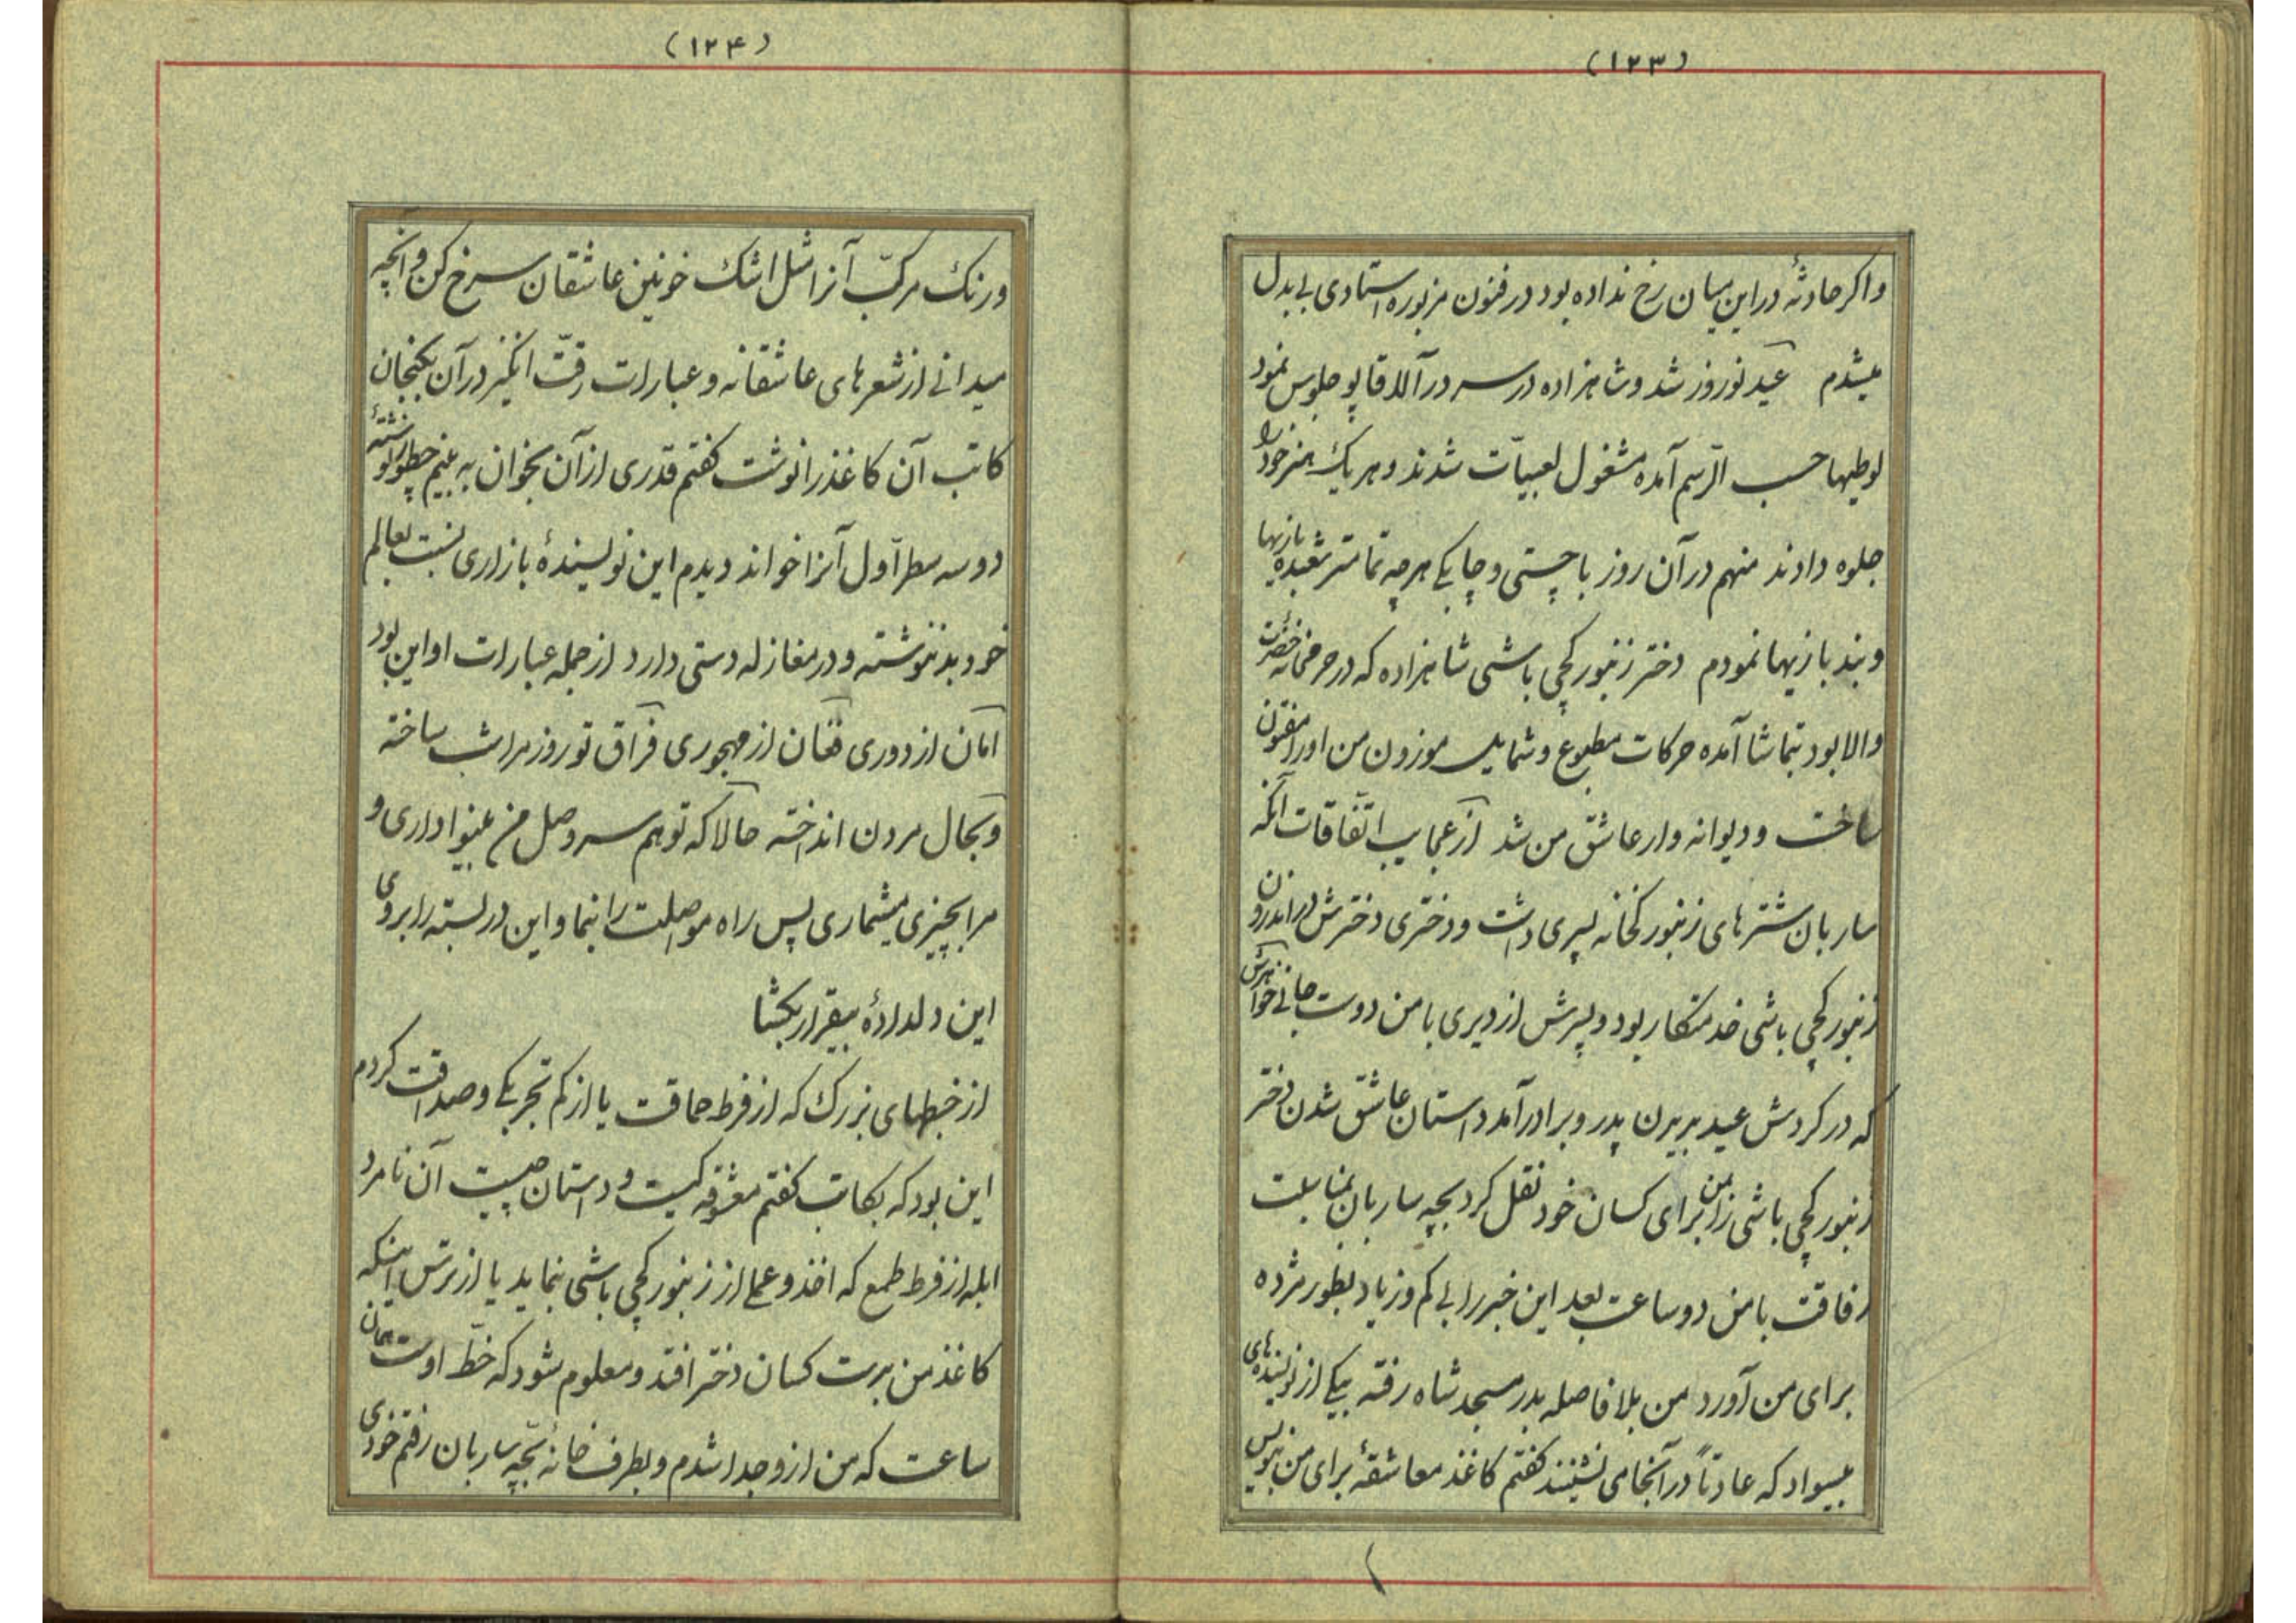 (۱۲۳)
واکر حادثهٔ در این میان رخ نداده بود در فنون مزبوره استادی بی بدل
میشدم عید نوروز شد و شاهزاده در سر در آلاقاپو جلوس نمود
لوطیها حسب الرّسم آمده مشغول لعبیّات شدند و هر یک هنر خود را
جلوه دادند منهم در آن روز با چستی و چابکی هر چه تمامتر شعبده بازیها
و بند بازیها نمودم دختر زنبورکچی باشی شاهزاده که در حرمخانه حضرت
والا بود بتماشا آمده حرکات مطبوع و شمایل موزون من او را مفتون
ساخت و دیوانه وار عاشق من شد از عجایب اتّفاقات آنکه
ساربان شترهای زنبورکخانه پسری داشت و دختری دخترش در اندرون
زنبورکچی باشی خدمتکار بود و پسرش از دیری با من دوست جانی خواهرش
که در کردش عید بریرن پدر و برادر آمد داستان عاشق شدن دختر
زنبورکچی باشی را بمن برای کسان خود نقل کرد بچه ساربان بمناسبت
رفاقت با من دو ساعت بعد این خبر را بی کم و زیاد بطور مژده
برای من آورد من بلا فاصله بدر مسجد شاه رفته بیکی از نویسنده های
بیسواد که عادتاً در آنجا می نشینند کفتم کاغذ معاشقهٔ برای من بنویس
(۱۲۴)
و رنک مرکّب آنرا مثل اشک خونین عاشقان سرخ کن و آنچه
میدانی از شعرهای عاشقانه و عبارات رقّت انکیز در آن بکنجان
کاتب آن کاغذ را نوشت کفتم قدری از آن بخوان به بینم چطور نوشتهٔ
دو سه سطر اوّل آنرا خواند دیدم این نویسندهٔ بازاری نسبت بعالم
خود بد ننوشته و در مغازله دستی دارد از جمله عبارات او این بود
امان از دوری فغان از مهجوری فراق تو روز مرا شب ساخته
و بحال مردن انداخته حالا که تو هم سر وصل من بینوا داری و
مرا بچیزی میشماری پس راه مواصلت را بنما و این در بسته را بروی
این دلدادهٔ بیقرار بکشا
از خبطهای بزرک که از فرط حماقت یا از کم تجربکی و صداقت کردم
این بود که بکاتب کفتم معشوقه کیست و داستان چیست آن نامرد
ابله از فرط طمع که اخذ و عملی از زنبورکچی باشی بنماید یا از ترس اینکه
کاغذ من بدست کسان دختر افتد و معلوم شود که خطّ اوست همان
ساعت که من از و جدا شدم و بطرف خانهٔ بچّه ساربان رفتم خود را